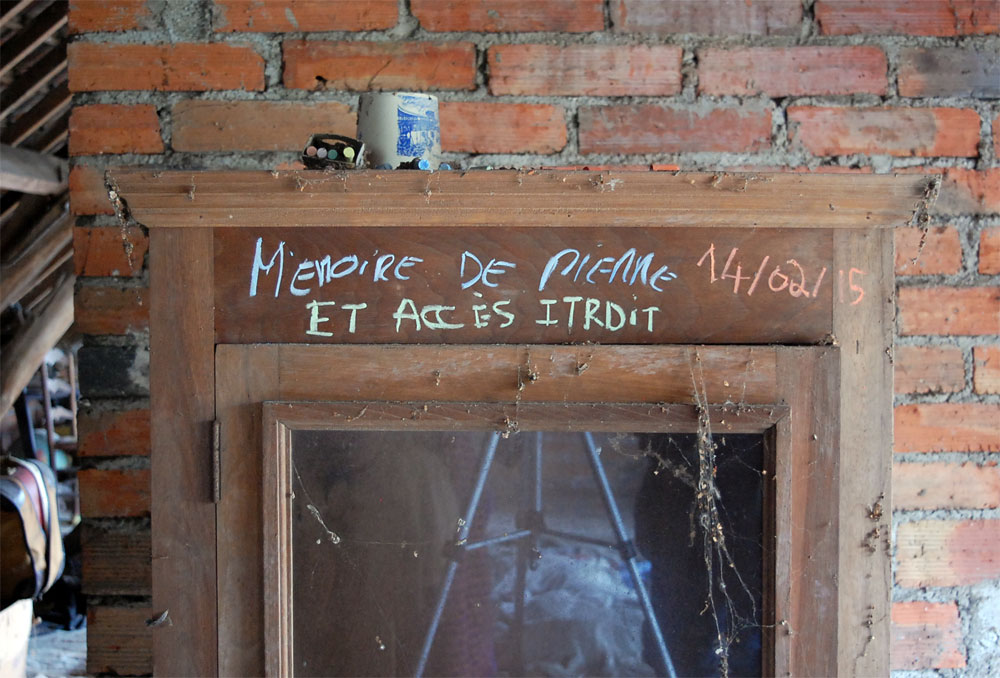 MEMOIRE DE PIERRE 14/02/15
ET ACCÈS ITRDIT